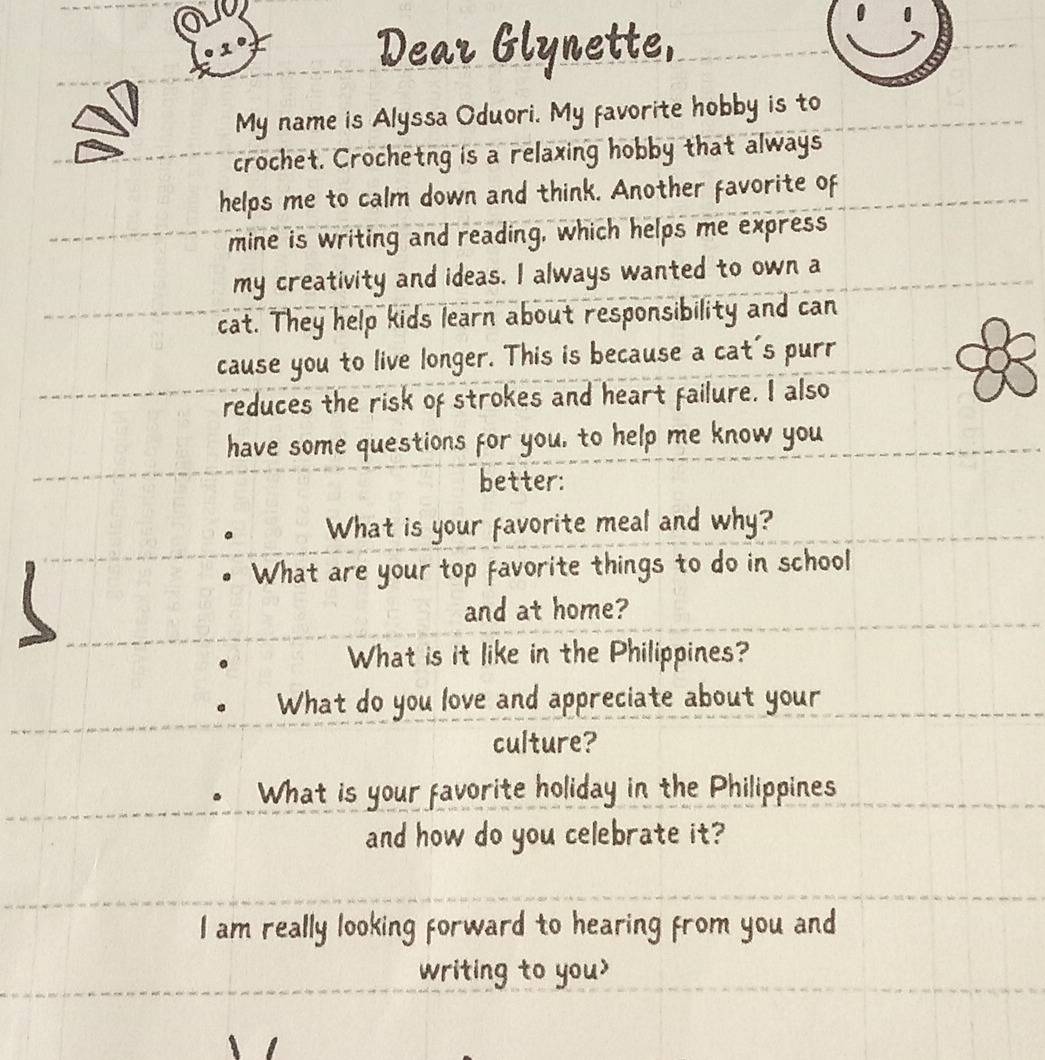 Dear Glynette,
My name is Alyssa Oduori. My favorite hobby is to
crochet. Crochetng is a relaxing hobby that always
helps me to calm down and think. Another favorite of
mine is writing and reading, which helps me express
my creativity and ideas. I always wanted to own a
cat. They help kids learn about responsibility and can
cause you to live longer. This is because a cat's purr
reduces the risk of strokes and heart failure. I also
have some questions for you, to help me know you
better:
• What is your favorite meal and why?
• What are your top favorite things to do in school
and at home?
• What is it like in the Philippines?
• What do you love and appreciate about your
culture?
• What is your favorite holiday in the Philippines
and how do you celebrate it?
I am really looking forward to hearing from you and
writing to you>